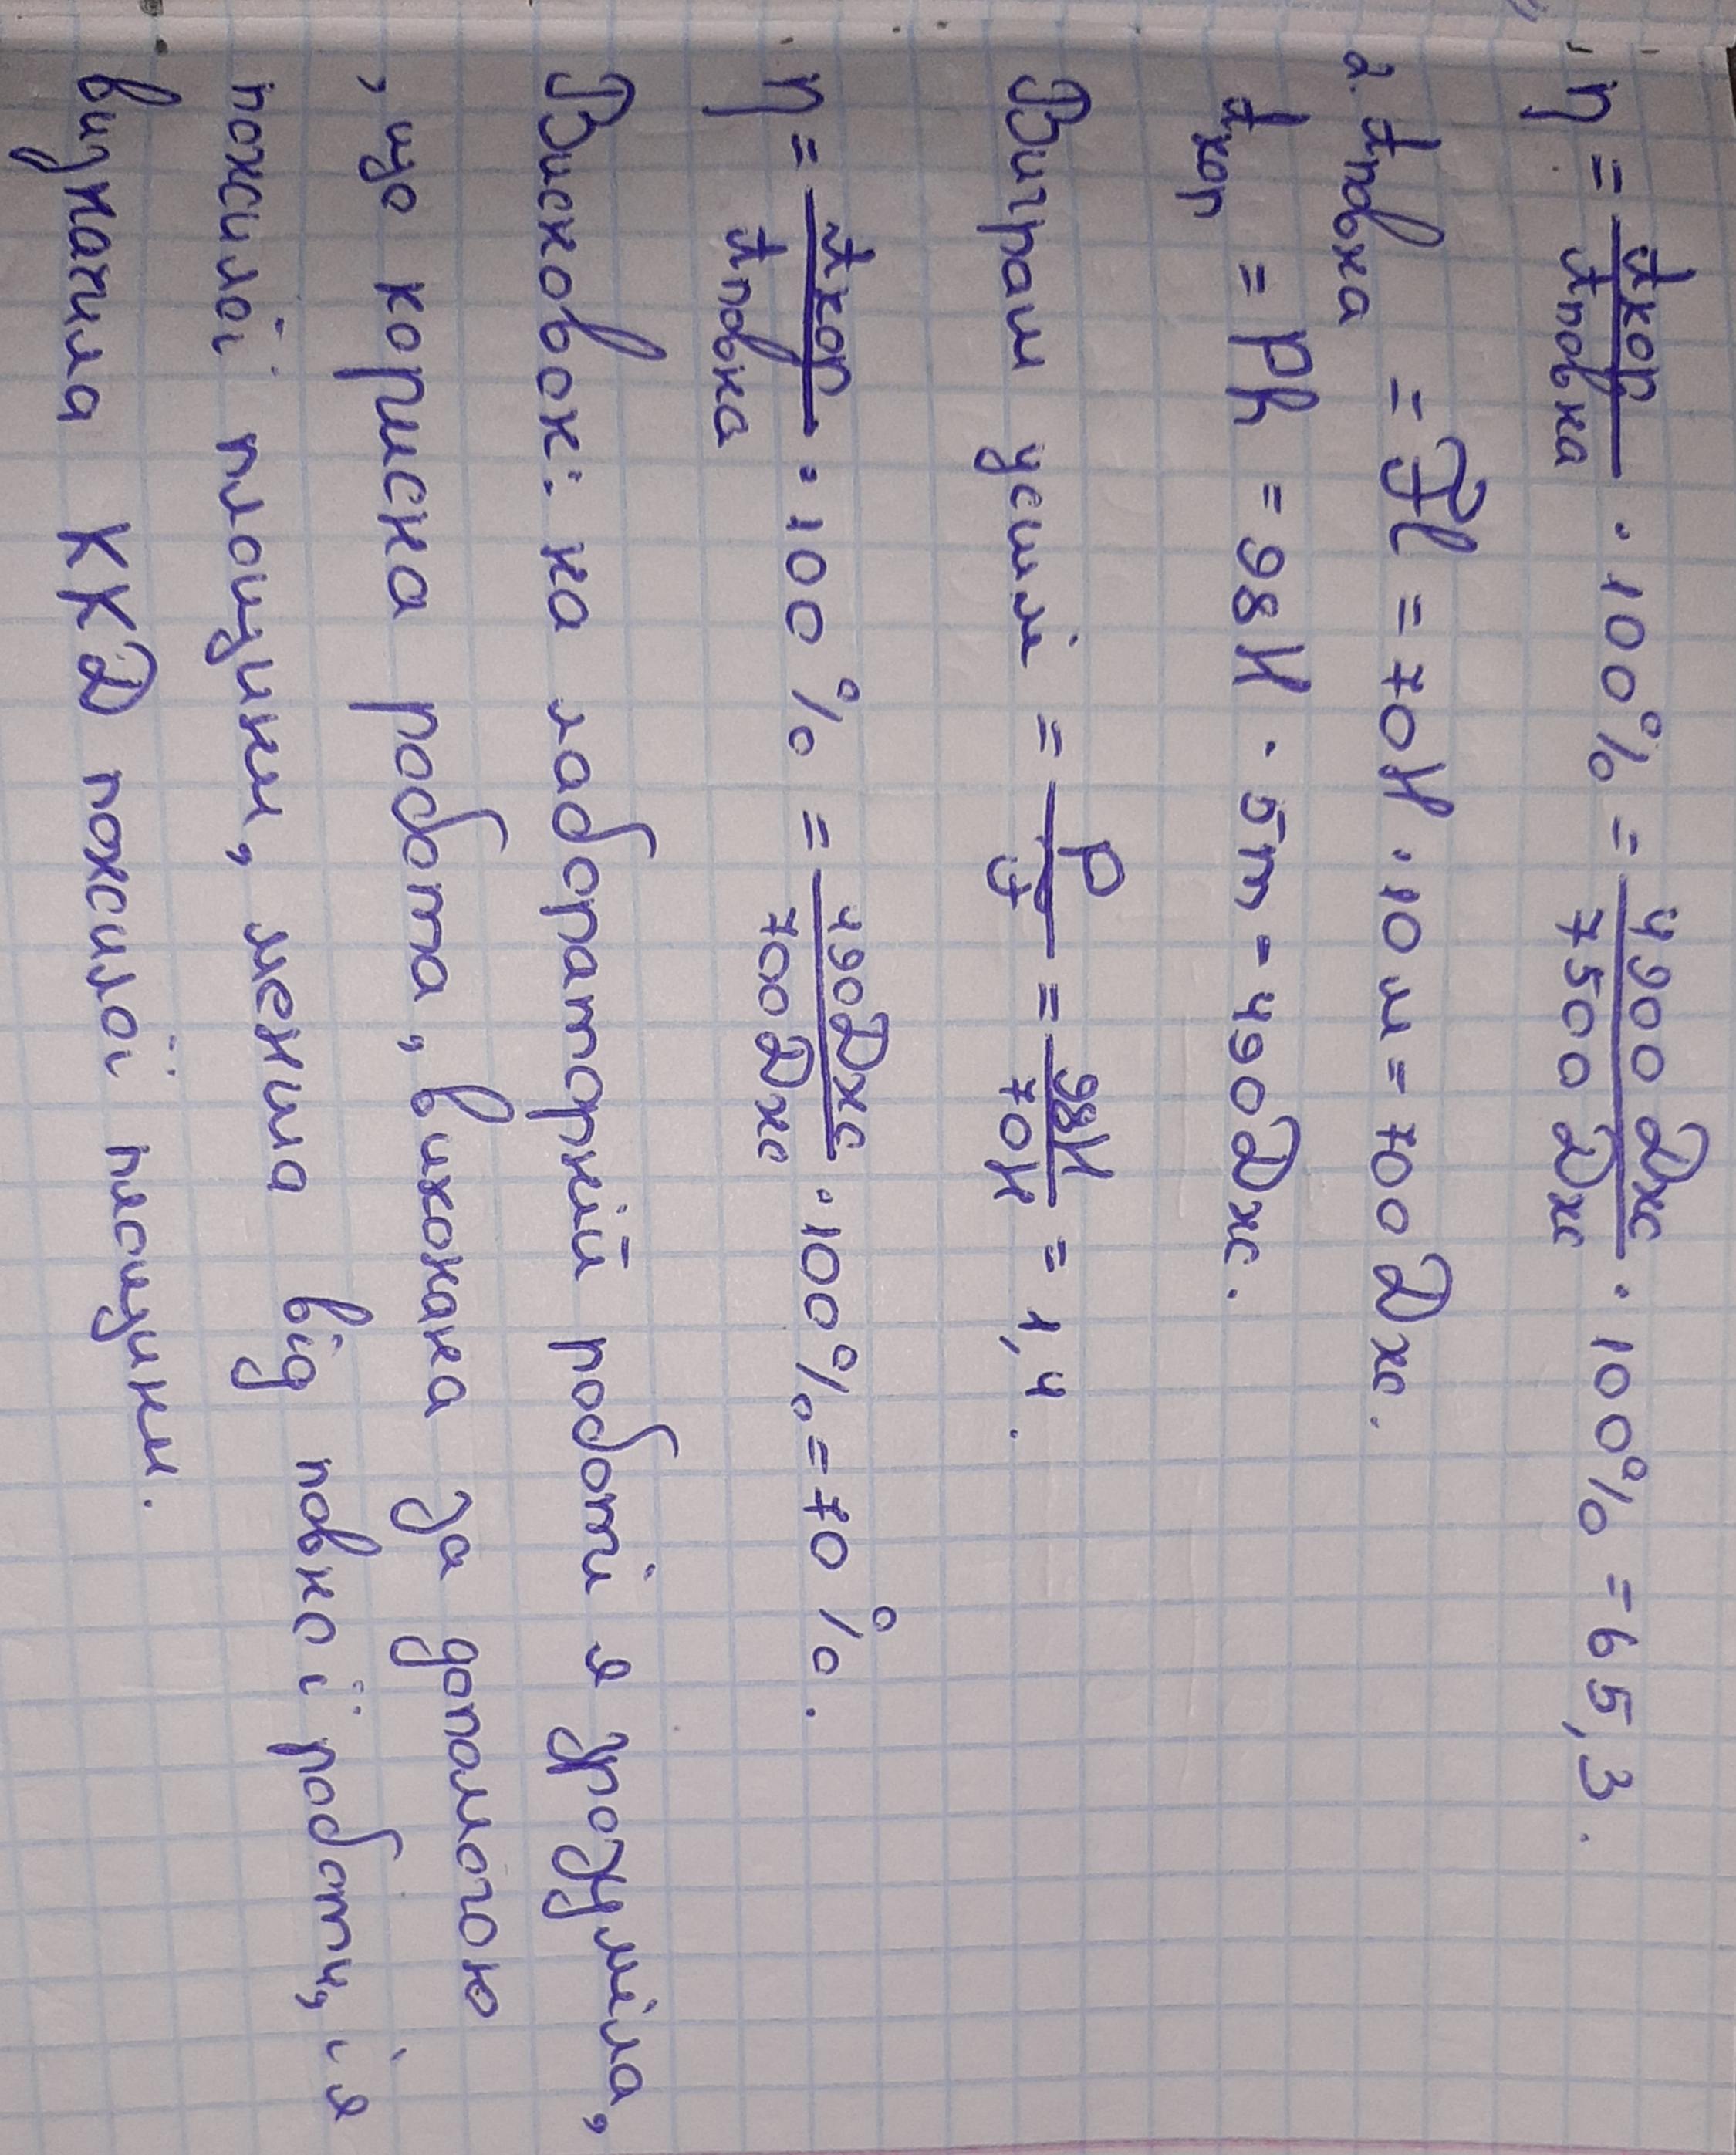 η = Aкор/Aповна · 100% = 4900 Дж/7500 Дж · 100% = 65,3.
2. Aповна = Fl = 70Н · 10м = 700 Дж.
Aкор = Ph = 98Н · 5m = 490 Дж.
Виграш у силі = P/F = 98Н/70Н = 1,4.
η = Aкор/Aповна · 100% = 490Дж/700Дж · 100% = 70%.
Висновок: на лабораторній роботі я зрозуміла,
, що корисна робота, виконана за допомогою
похилої площини, менша від повної роботи, і я
визначила ККД похилої площини.